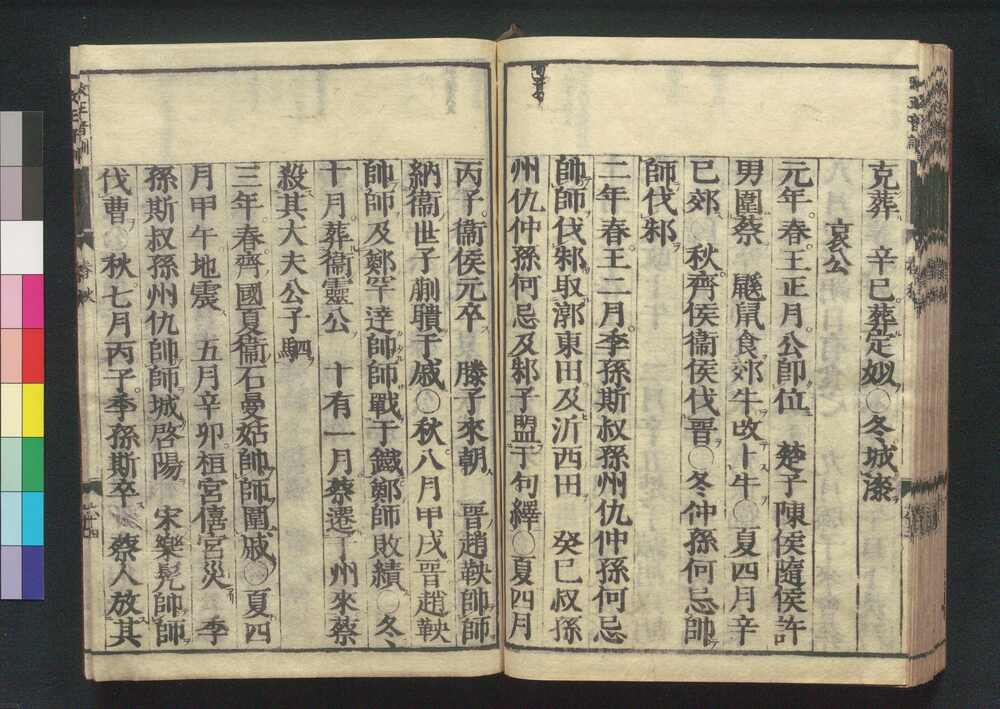 克葬　辛巳葬定姒〇冬城漆
哀公
元年春王正月公卽位　楚子陳侯隨侯許
男圍蔡　鼷鼠食郊牛改卜牛〇夏四月辛
巳郊〇秋齊侯衞侯伐晋〇冬仲孫何忌帥
師伐邾
二年春王二月季孫斯叔孫州仇仲孫何忌
帥師伐邾取漷東田及沂西田　癸巳叔孫
州仇仲孫何忌及邾子盟于句繹〇夏四月
丙子衞侯元卒　滕子來朝　晋趙鞅帥師
納衞世子蒯聵于戚〇秋八月甲戌晋趙鞅
帥師及鄭罕逹帥師戰于鐵鄭師敗績〇冬
十月葬衞靈公　十有一月蔡遷于州來蔡
殺其大夫公子駟
三年春齊國夏衞石曼姑帥師圍戚〇夏四
月甲午地震　五月辛卯桓宮僖宮災　季
孫斯叔孫州仇帥師城啓陽　宋樂髡帥師
伐曹　秋七月丙子季孫斯卒　蔡人放其
春秋